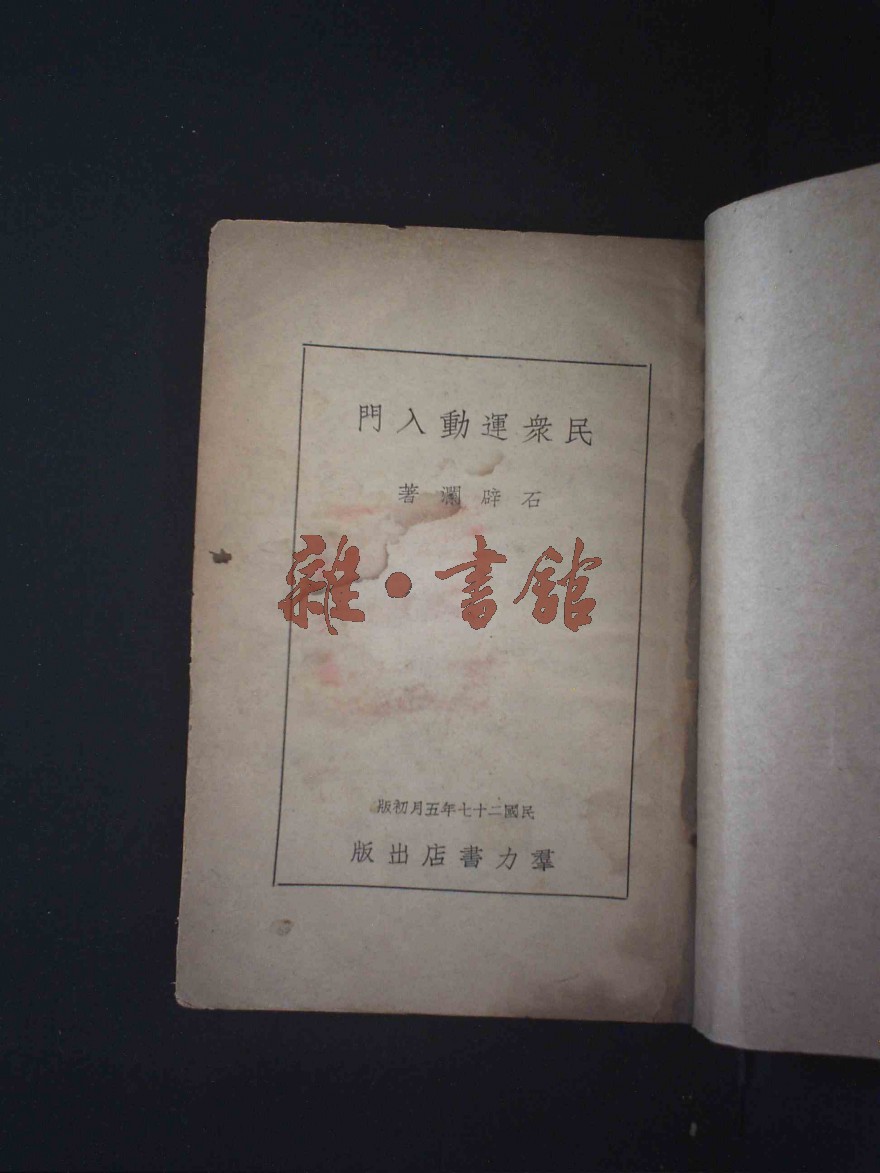 民衆運動入門
石辟瀾著
雜·書館
民國二十七年五月初版
羣力書店出版